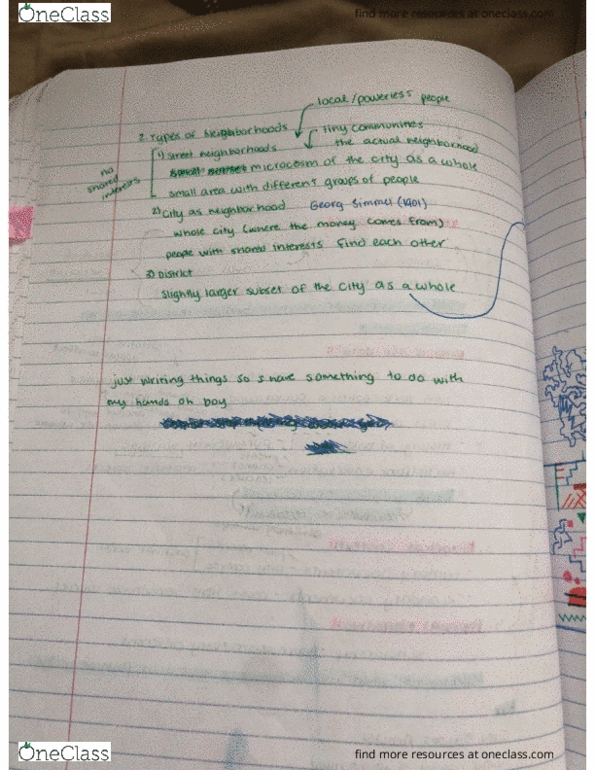 OneClass
find more resources at oneclass.com
local/powerless people
2 Types of Neighborhoods
tiny communities
1) Street neighborhoods
the actual neighborhood
no shared interests
microcosm of the city as a whole
small area with different groups of people
2) City as neighborhood Georg Simmel (1901)
whole city (where the money comes from)
people with shared interests find each other
3) District
slightly larger subset of the city as a whole
just writing things so I have something to do with
my hands oh boy
OneClass
find more resources at oneclass.com